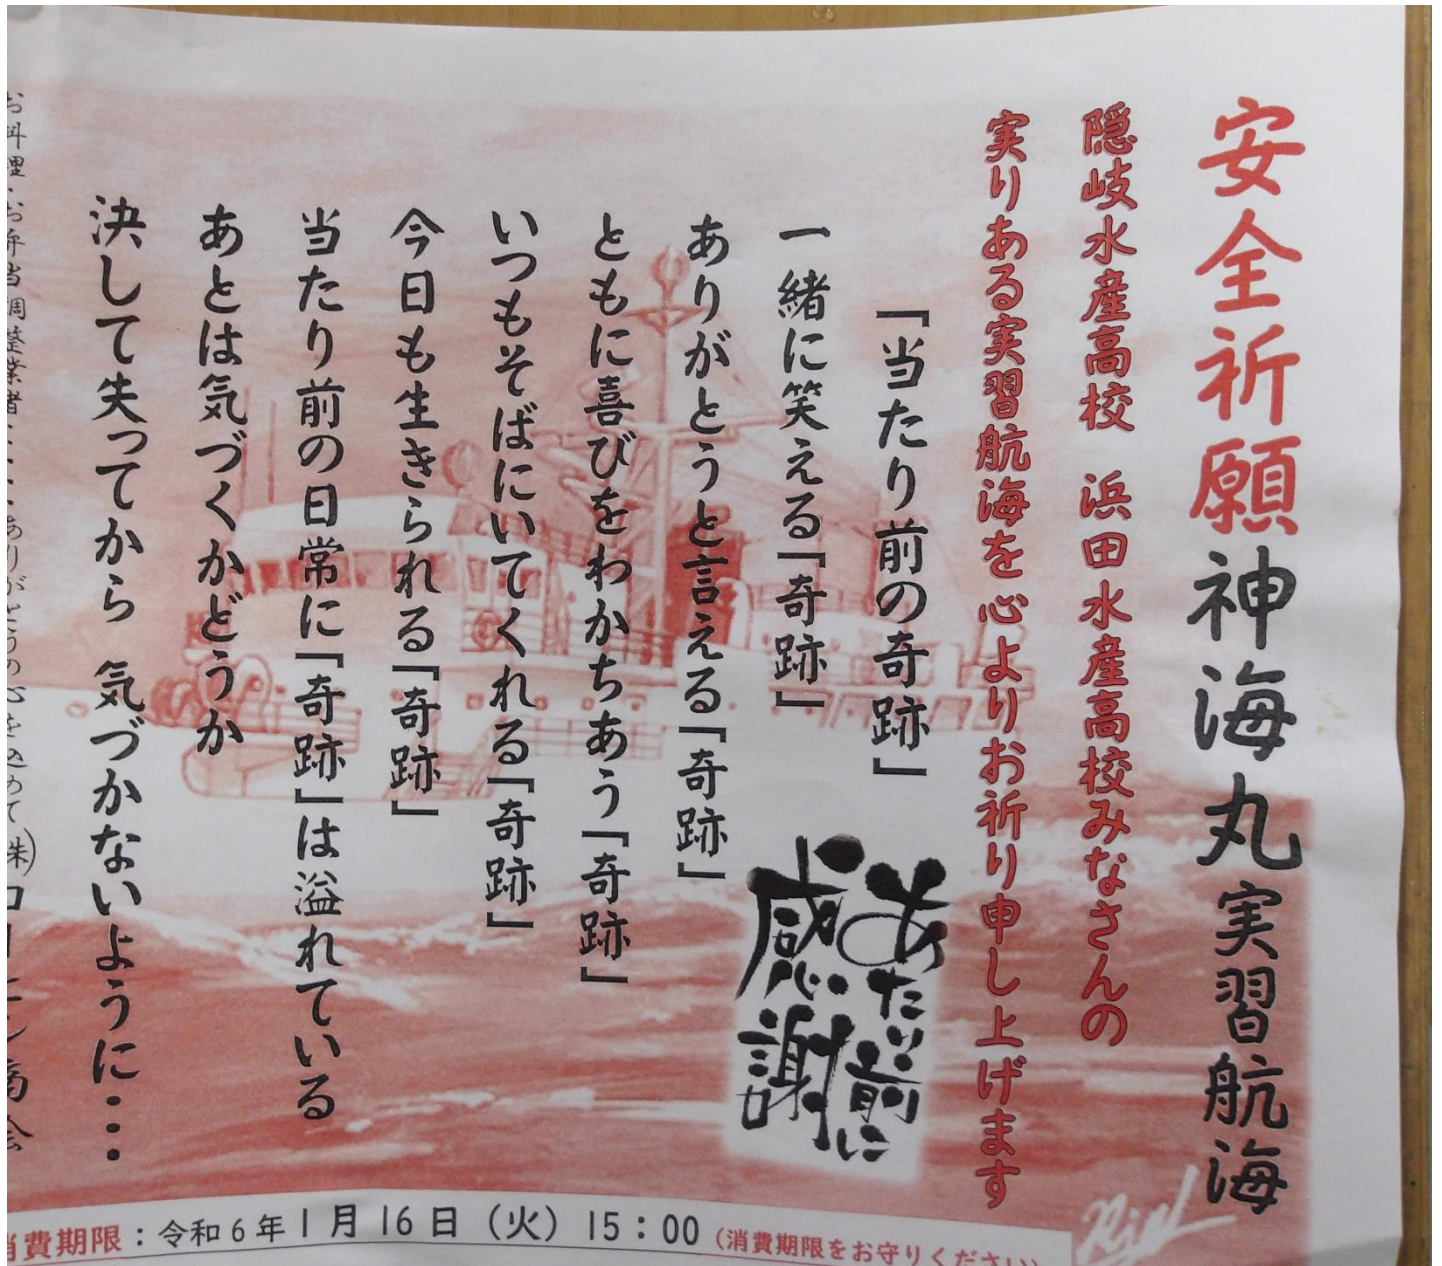 安全祈願神海丸実習航海
隠岐水産高校　浜田水産高校みなさんの
実りある実習航海を心よりお祈り申し上げます
「当たり前の奇跡」
一緒に笑える「奇跡」
ありがとうと言える「奇跡」
ともに喜びをわかちあう「奇跡」
いつもそばにいてくれる「奇跡」
今日も生きられる「奇跡」
当たり前の日常に「奇跡」は溢れている
あとは気づくかどうか
決して失ってから 気づかないように・・・
あたり前に
感謝
お料理・お弁当調整業者・・・ありがとうの心を込めて㈱
消費期限：令和6年1月16日（火）15：00（消費期限をお守りください）